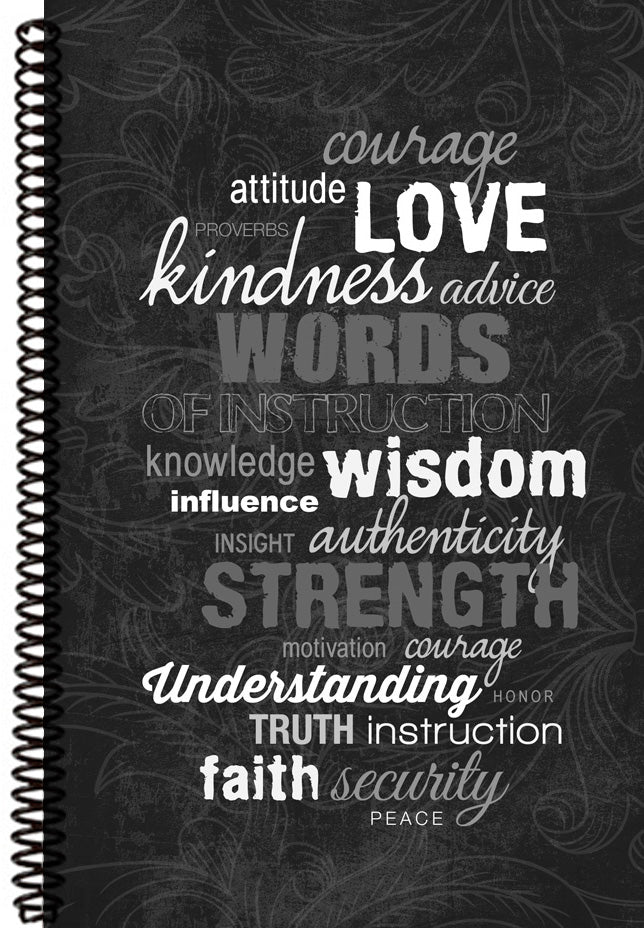 courage
attitude LOVE
PROVERBS
kindness advice
WORDS
OF INSTRUCTION
knowledge wisdom
influence
INSIGHT authenticity
STRENGTH
motivation courage
Understanding HONOR
TRUTH instruction
faith security
PEACE